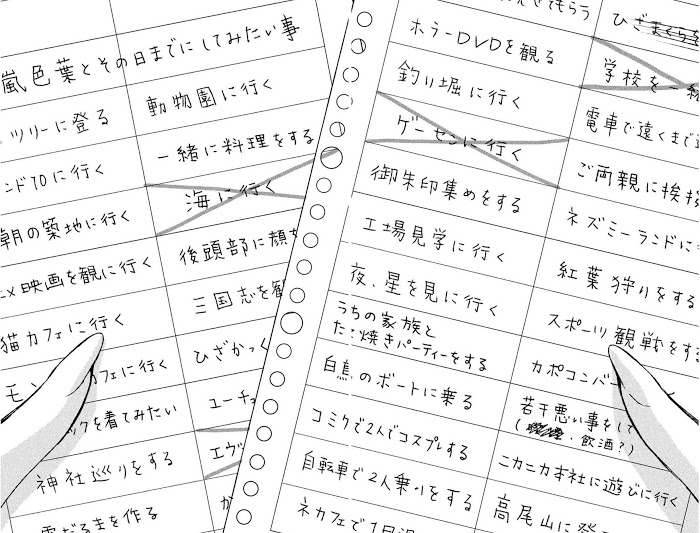 嵐色葉とその日までにしてみたい事
ツリーに登る
動物園に行く
ンド70に行く
一緒に料理をする
朝の築地に行く
海に行く
映画を観に行く
後頭部に顔
猫カフェに行く
三国志を
モン カフェに行く
ひざかっく
ックを着てみたい
ユーチュ
神社巡りをする
エヴ
雪だるまを作る
か
せてもらう
ひざまくらを
ホラーDVDを観る
学校を一
釣り堀に行く
電車で遠くまで
ゲーセンに行く
ご両親に挨拶
御朱印集めをする
ネズミーランドに
工場見学に行く
紅葉狩りをする
夜、星を見に行く
スポーツ観戦をす
うちの家族と
たこ焼きパーティーをする
カポコンバ
白鳥のボートに乗る
若干悪い事をして
(・飲酒?)
コミケで2人でコスプレする
ニカニカ本社に遊びに行く
自転車で2人乗りをする
高尾山に登
ネカフェで1日